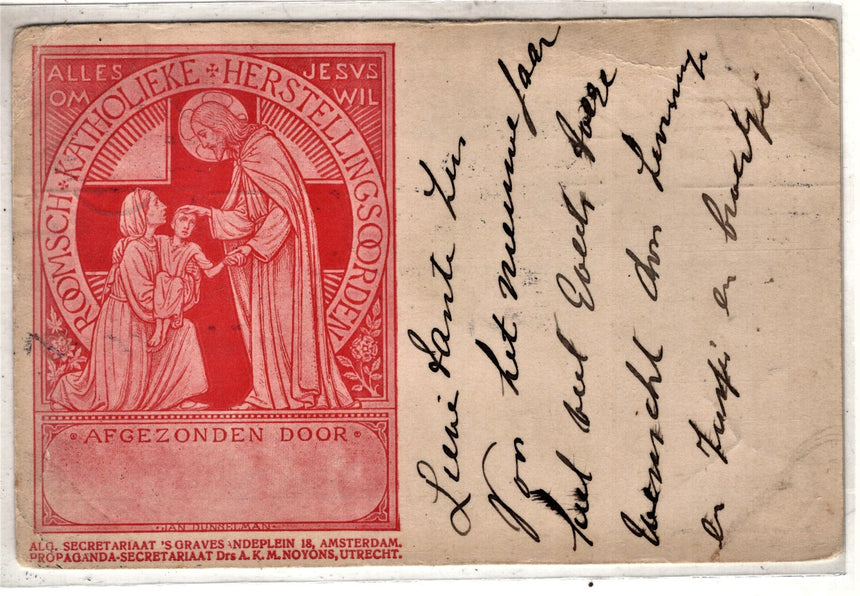 ALLES OM JESVS WIL
ROOMSCH·KATHOLIEKE + HERSTELLINGSOORDEN
AFGEZONDEN DOOR
·JAN DUNSELMAN·
ALG. SECRETARIAAT 'S GRAVESANDEPLEIN 18, AMSTERDAM.
PROPAGANDA-SECRETARIAAT Drs A. K. M. NOYONS, UTRECHT.
Lieve tante
Von het nieuwe Jaar
heel veel Goeds
wenscht
en Zusje en broertje